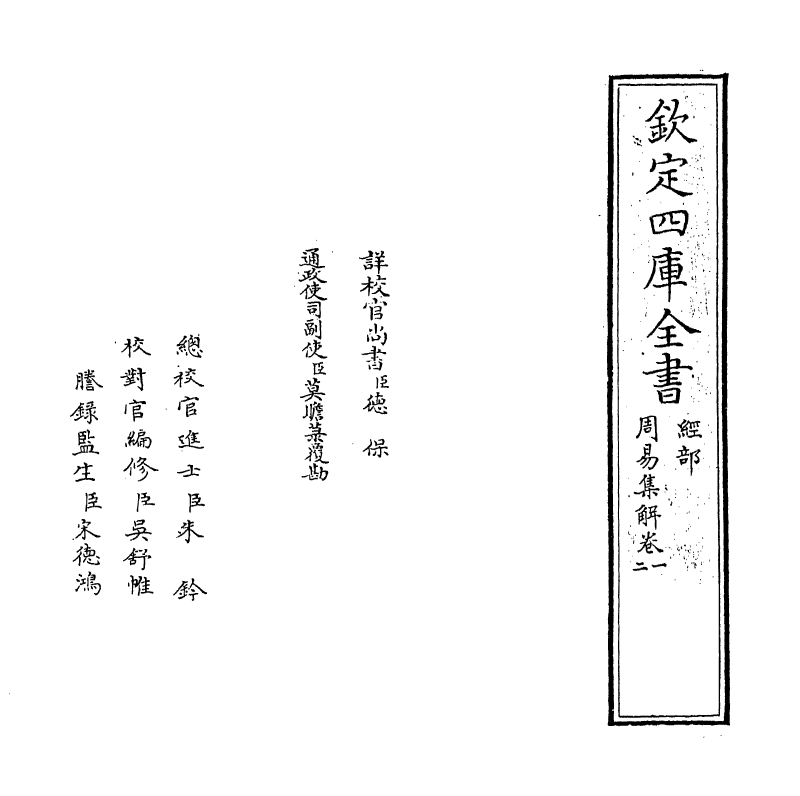 欽定四庫全書
經部
周易集解卷一二
詳校官尚書臣德保
通政使司副使臣莫瞻菉覆勘
總校官進士臣朱鈐
校對官編修臣吳舒帷
謄録監生臣宋德鴻